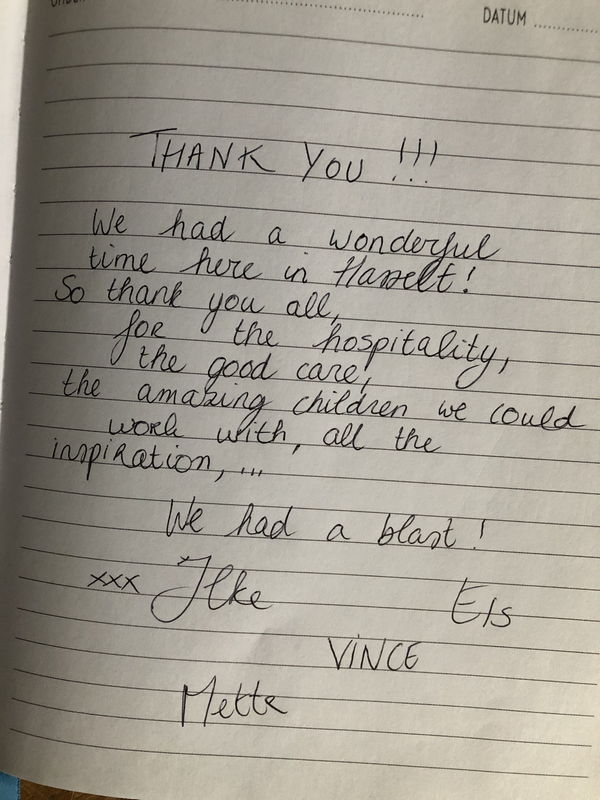 DATUM
THANK YOU !!!
We had a wonderful
time here in Hasselt!
So thank you all,
for the hospitality,
the good care,
the amazing children we could
work with, all the
inspiration, ...
We had a blast!
xxx Ilke Els
VINCE
Mette